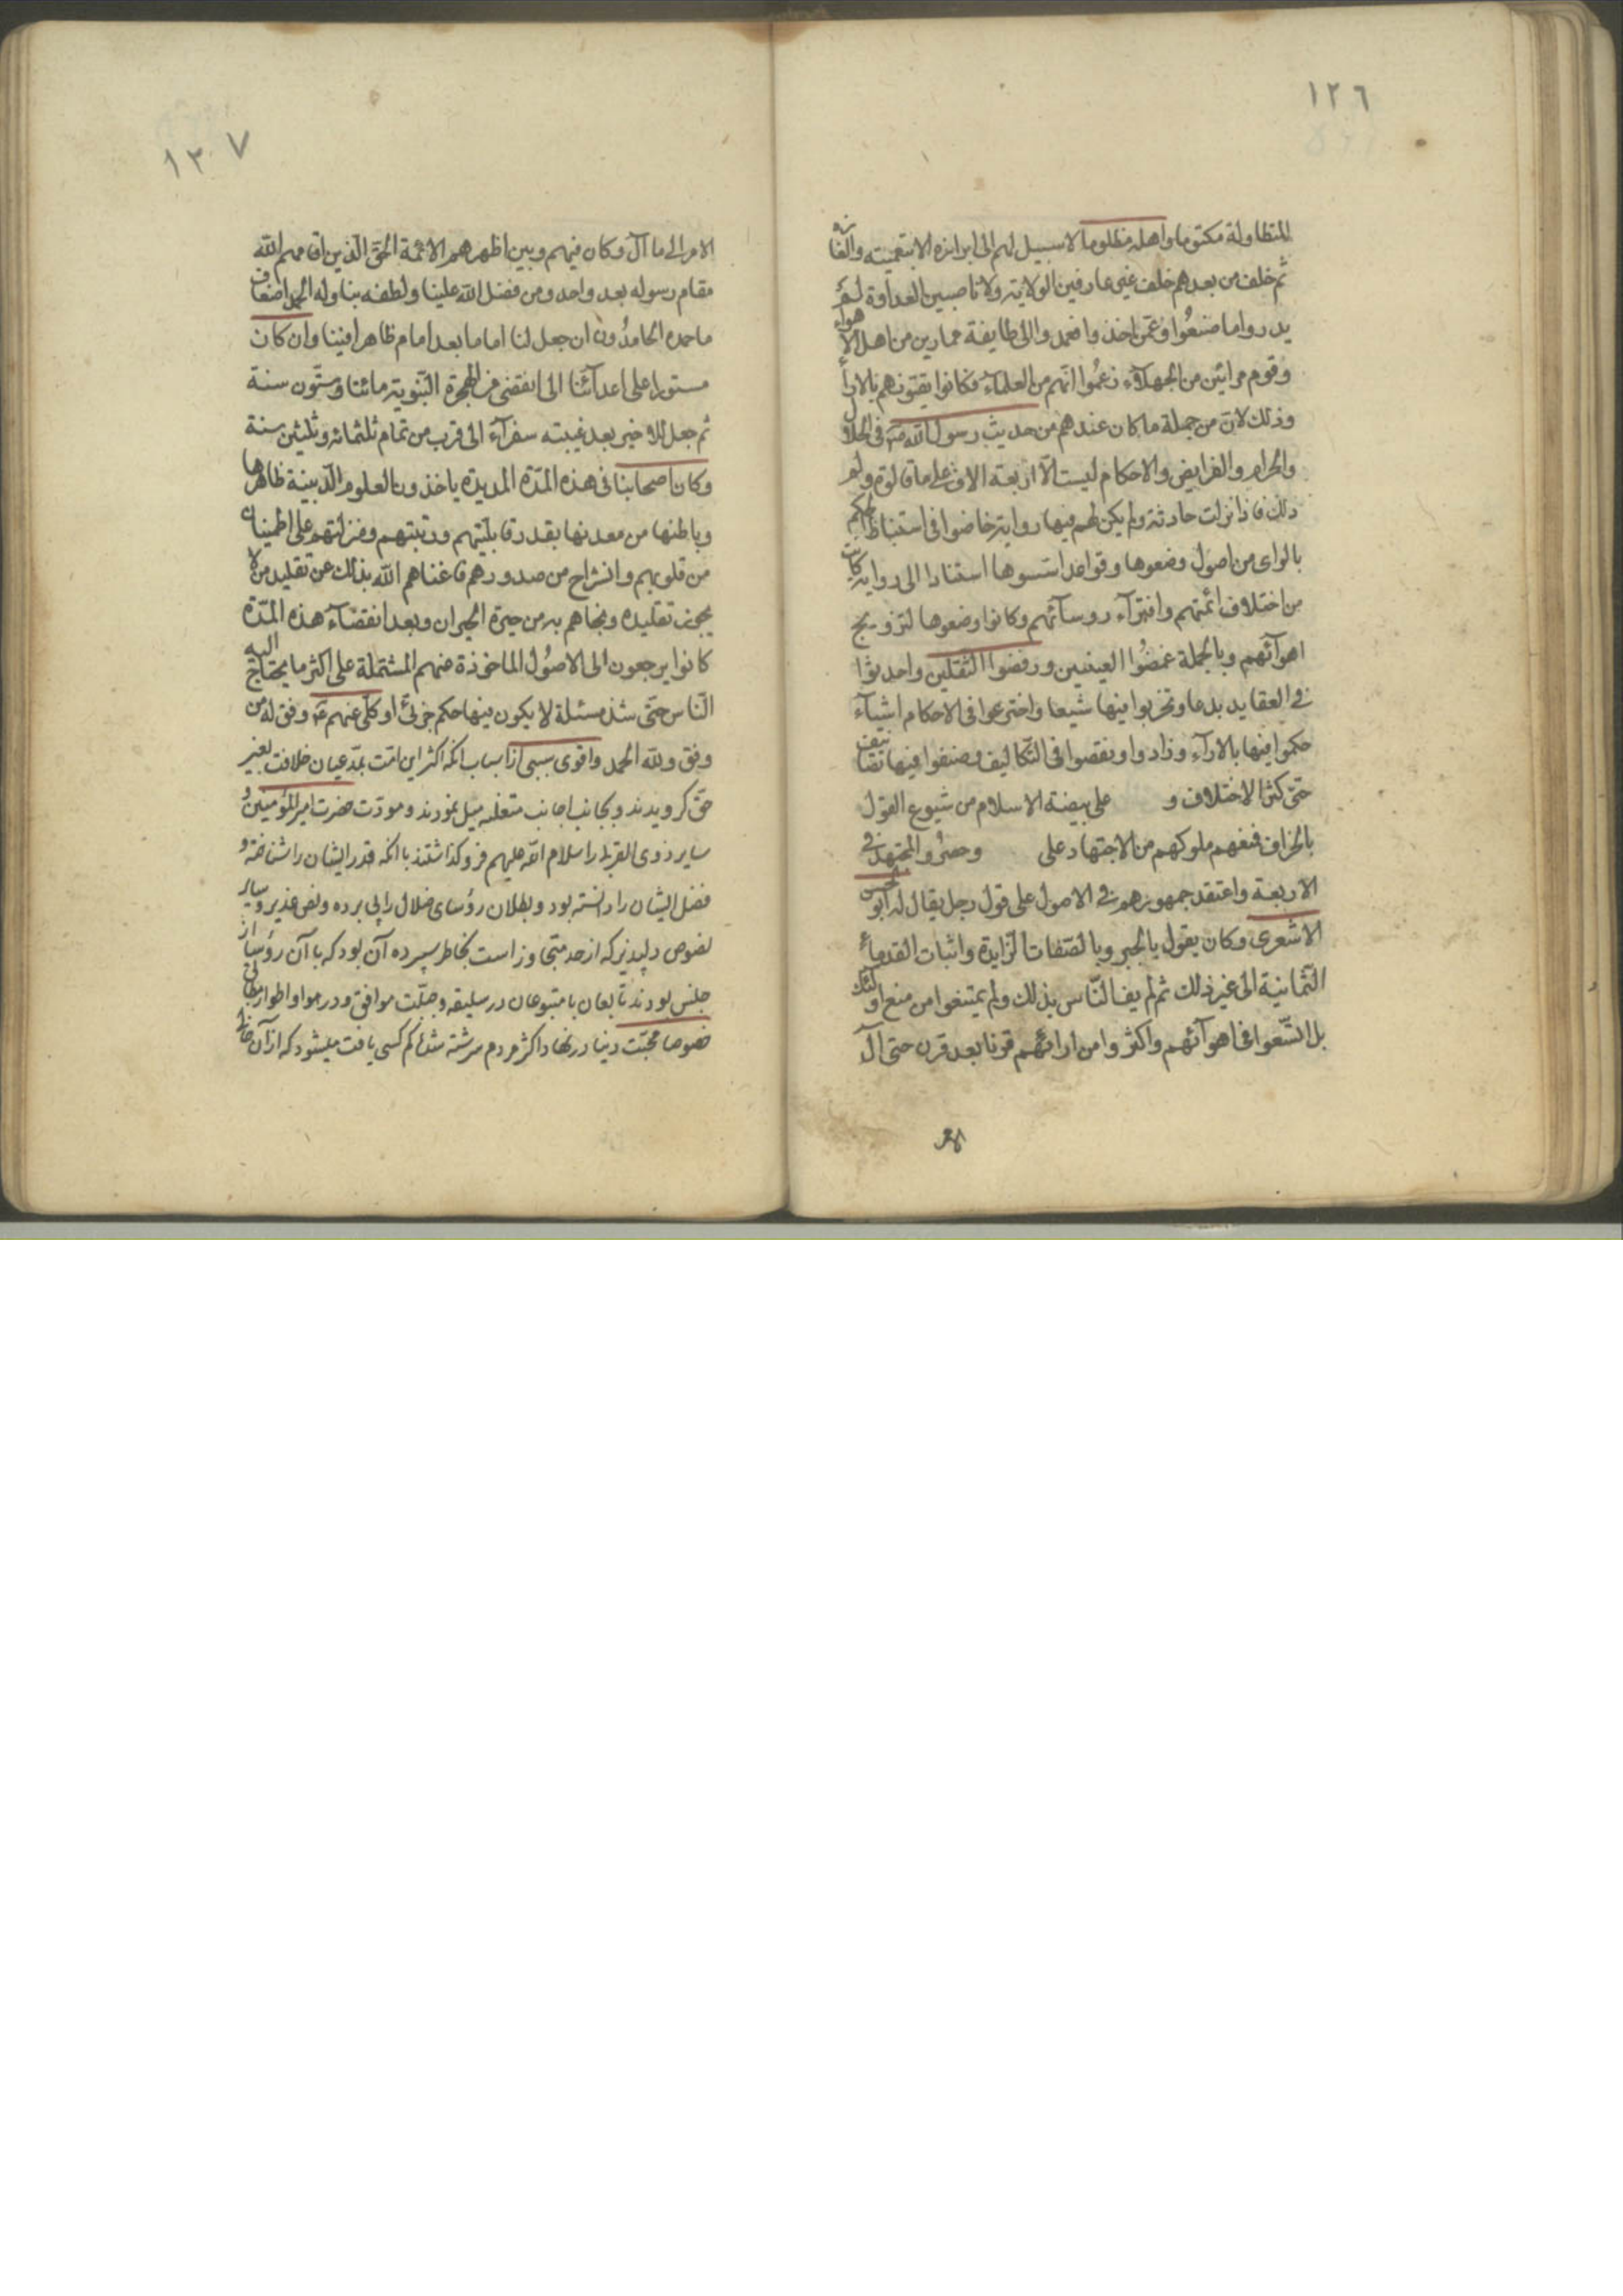 ١٢٦
المتطاولة مكتوما واهله مظلوما لاسبيل لهم الى ابرازه الا بتعميته والغازه
ثم خلف من بعدهم خلف غير عارفين الولاية ولا ناصبين العداوة لم
يدروا ما صنعوا وعمن اخذوا فعمدوا الى طايفة ممارين من اهل الاهواء
وقوم مرائين من الجهلاء زعموا انهم من العلماء فكانوا يفتونهم بالاراء
وذلك لان من جملة ما كان عندهم من حديث رسول الله ص في الحلال
والحرام والفرايض والاحكام ليست الا اربعة الاف على ما قالوه ولم
ذلك فاذا نزلت حادثة ولم يكن لهم فيها رواية خاضوا في استنباط الحكم
بالراى من اصول وضعوها وقواعد اسسوها استنادا الى رواية كانت
من اختلاف ائمتهم وافتراء روسائهم وكانوا وضعوها لترويج
اهوائهم وبالجملة غمضوا العينين ورفضوا الثقلين واحدثوا
في العقايد بدعا وتحزبوا فيها شيعا واخترعوا في الاحكام اشياء
حكموا فيها بالاراء وزادوا ونقصوا في التكاليف وصنفوا فيها تصانيف
حتى كثر الاختلاف و على بيضة الاسلام من شيوع القول
بالجزاف فمنعهم ملوكهم من الاجتهاد على وحصروا المجتهد في
الاربعة واعتقد جمهورهم في الاصول على قول رجل يقال له ابو الحسن
الاشعرى وكان يقول بالجبر وبالصفات الزايدة واثبات القدماء
الثمانية الى غير ذلك ثم لم يف الناس بذلك ولم يمتنعوا من منع اولئك
بل اتسعوا في اهوائهم واكثروا من ارائهم قرنا بعد قرن حتى آل
١٢٧
الامر الى ما آل وكان فيهم وبين اظهرهم الائمة الحق الذين اقامهم الله
مقام رسوله بعد واحد ومن فضل الله علينا ولطفه بنا وله الحمد اضعاف
ما حمده الحامدون ان جعل لنا اماما بعد امام ظاهرا فينا وان كان
مستورا على اعدائنا الى انقضى من الهجرة النبوية مائتا وستون سنة
ثم جعل للاخير بعد غيبته سفراء الى قرب من تمام ثلثمائه وثلثين سنة
وكان اصحابنا في هذه المدة المديدة ياخذون العلوم الدينية ظاهرها
وباطنها من معدنها بقدر قابليتهم ورتبتهم ومنزلتهم على اطمينان
من قلوبهم وانشراح من صدورهم فاغناهم الله بذلك عن تقليد من لا
يجوز تقليده ونجاهم به من حيرة الحيران وبعد انقضاء هذه المدة
كانوا يرجعون الى الاصول الماخوذة منهم المشتملة على اكثر ما يحتاج اليه
الناس حتى شذ مسئلة لا يكون فيها حكم جزئى او كلى عنهم ع وفق له من
وفق ولله الحمد واقوى سببى از اسباب انكه اكثر اين امت بمدعيان خلافت بغير
حق كرويدند و بجانب اجانب متغلبه ميل نمودند و مودت حضرت امير المؤمنين و
ساير ذوى القربى را سلام الله عليهم فرو كذاشتند با انكه قدر ايشان را شناخته و
فضل ايشان را دانسته بود و بطلان رؤساى ضلال را پى برده و نص غدير و ساير
نصوص دلپذير كه از حد متجاوز است بخاطر سپرده آن بود كه با آن رؤسا از
جنس بودند تابعان با متبوعان در سليقه و جبلت موافق و در هوا و اطوار مطابق
خصوصا محبت دنيا در نهاد اكثر مردم سرشته شد كم كسى يافت ميشود كه از آن خالى